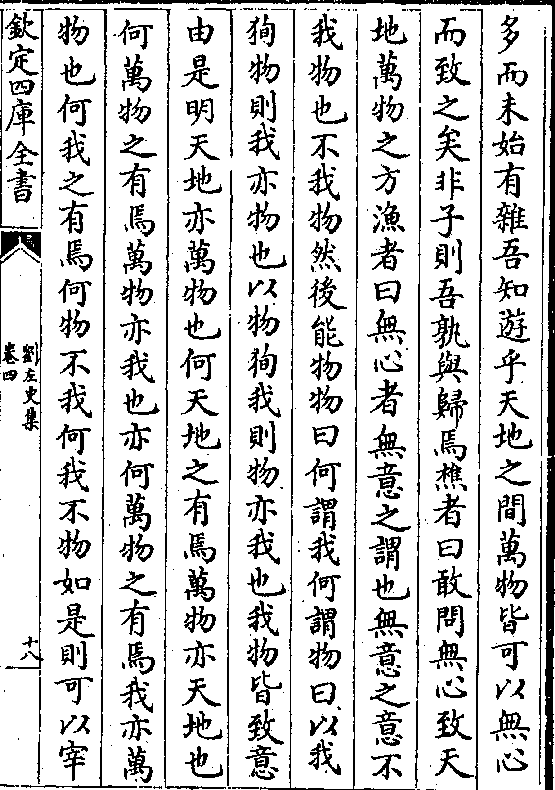 多而未始有雜吾知遊乎天地之間萬物皆可以無心
而致之矣非子則吾孰與歸焉樵者曰敢問無心致天
地萬物之方漁者曰無心者無意之謂也無意之意不
我物也不我物然後能物物曰何謂我何謂物曰以我
狥物則我亦物也以物狥我則物亦我也我物皆致意
由是明天地亦萬物也何天地之有焉萬物亦天地也
何萬物之有焉萬物亦我也亦何萬物之有焉我亦萬
物也何我之有焉何物不我何我不物如是則可以宰
欽定四庫全書
劉左史集
卷四
十八